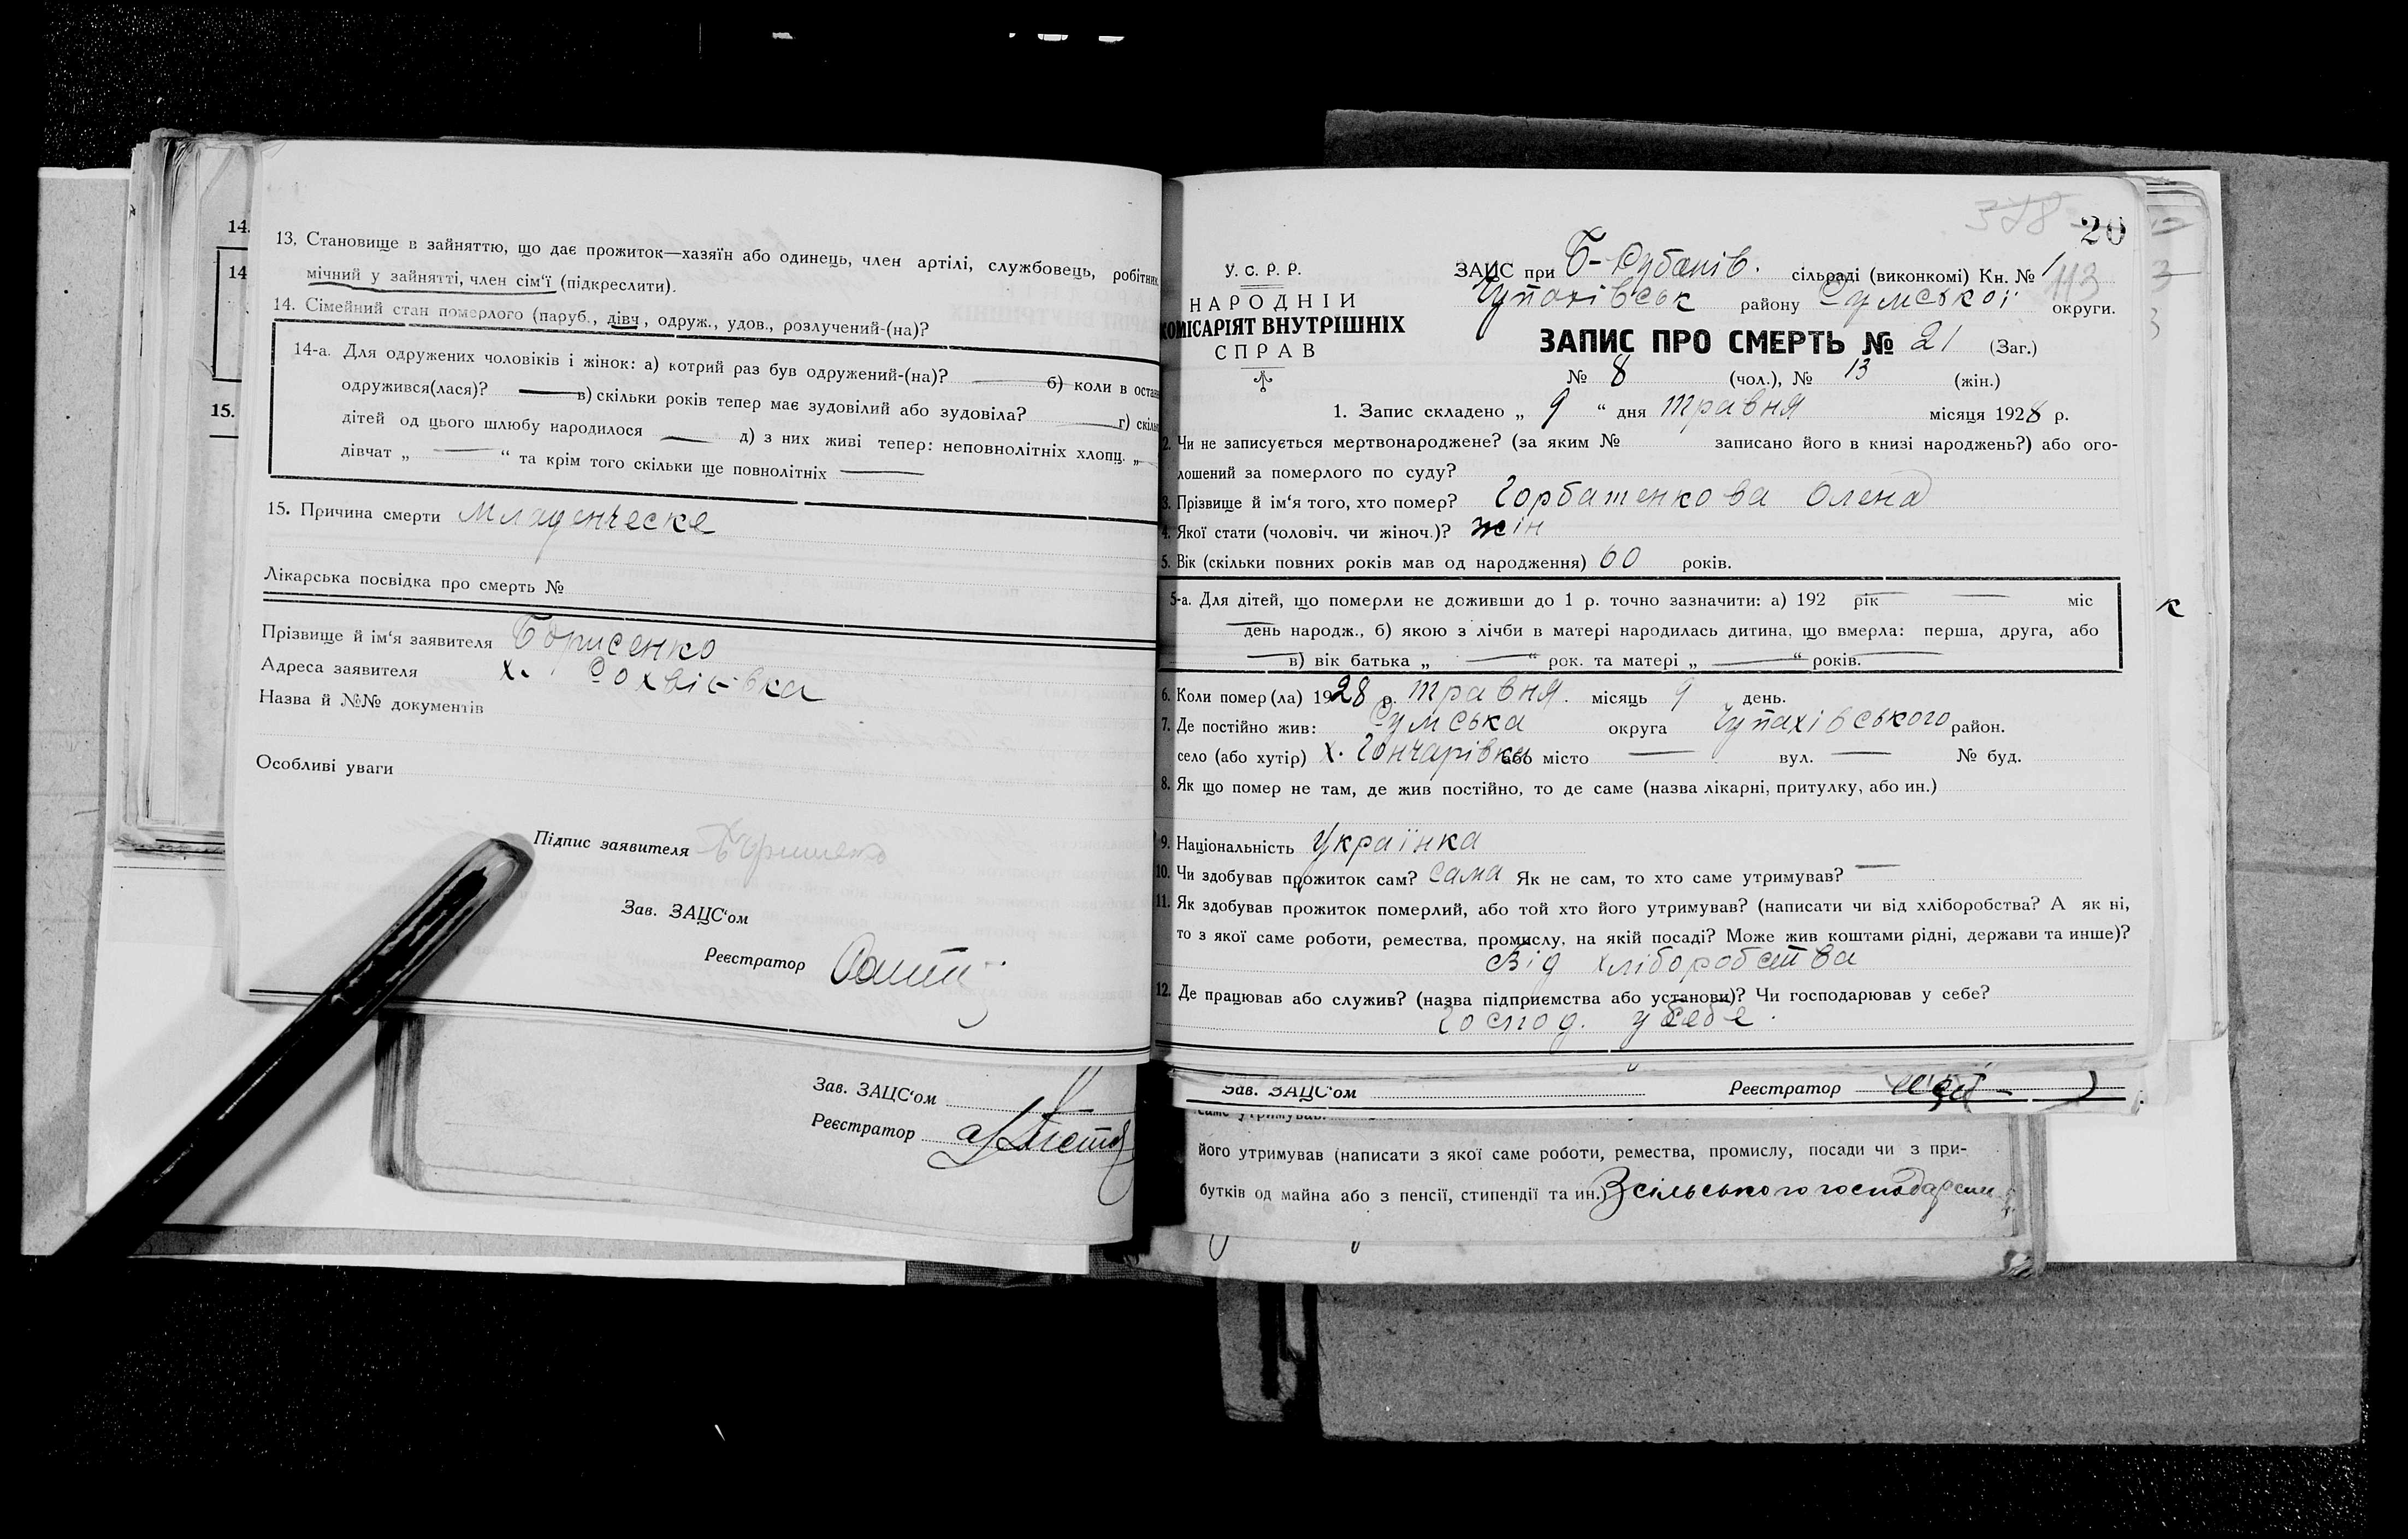 14.
14
15.
13. Становище в зайняттю, що дає прожиток—хазяїн або одинець, член артілі, службовець, робітник
мічний у зайнятті, член сім'ї (підкреслити).
14. Сімейний стан померлого (паруб., дівч., одруж., удов., розлучений-(на)?
14-а. Для одружених чоловіків і жінок: а) котрий раз був одружений-(на)? — б) коли в остан
одружився(лася)? — в) скільки років тепер має зудовілий або зудовіла? — г) скіль
дітей од цього шлюбу народилося — д) з них живі тепер: неповнолітніх хлопц. „
дівчат „ — “ та крім того скільки ще повнолітніх —
15. Причина смерти Младенческе
Лікарська посвідка про смерть №
Прізвище й ім'я заявителя Борисенко
Адреса заявителя х.
Назва й №№ документів
Особливі уваги
Підпис заявителя
Зав. ЗАЦС'ом
Реєстратор
Зав. ЗАЦС'ом
Реєстратор
378 20
У. С. Р. Р.
НАРОДНІЙ
КОМІСАРІЯТ ВНУТРІШНІХ
СПРАВ
ЗАЦС при сільраді (виконкомі) Кн. № 1
113
Чупахівськ району Сумської округи.
ЗАПИС ПРО СМЕРТЬ № 21 (Заг.)
№ 8 (чол.), № 13 (жін.)
1. Запис складено „ 9 “ дня травня місяця 1928 р.
2. Чи не записується мертвонароджене? (за яким № записано його в книзі народжень?) або ого-
лошений за померлого по суду?
3. Прізвище й ім'я того, хто помер? Горбатенкова Олена
4. Якої стати (чоловіч. чи жіноч.)? жін
5. Вік (скільки повних років мав од народження) 60 років.
5-а. Для дітей, що померли не доживши до 1 р. точно зазначити: а) 192 рік — міс
— день народж., б) якою з лічби в матері народилась дитина, що вмерла: перша, друга, або
— в) вік батька „ — “ рок. та матері „ — “ років.
6. Коли помер (ла) 1928 р. травня. місяць 9 день.
7. Де постійно жив: Сумська округа Чупахівського район.
село (або хутір) х. Гончарівка або місто — вул. — № буд.
8. Як що помер не там, де жив постійно, то де саме (назва лікарні, притулку, або ин.)
9. Національність Українка
10. Чи здобував прожиток сам? сама Як не сам, то хто саме утримував? —
11. Як здобував прожиток померлий, або той хто його утримував? (написати чи від хліборобства? А як ні,
то з якої саме роботи, ремества, промислу, на якій посаді? Може жив коштами рідні, держави та инше)?
Від хліборобства
12. Де працював або служив? (назва підприємства або установи)? Чи господарював у себе?
Господ. у себе.
Зав. ЗАЦС'ом Реєстратор
саме утримував.
його утримував (написати з якої саме роботи, ремества, промислу, посади чи з при-
бутків од майна або з пенсії, стипендії та ин.) З сільського господарств
к